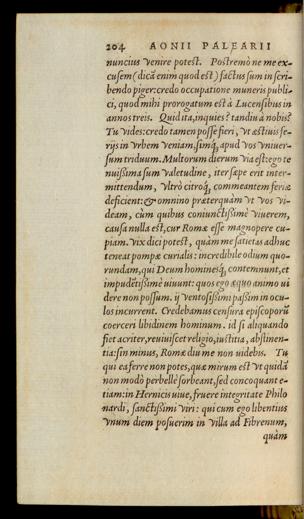 204 AONII PALEARII
nuncius venire potest. Postremò ne me ex-
cusem (dicā enim quod est) factus sum in scri-
bendo piger: credo occupatione muneris publi-
ci, quod mihi prorogatum est à Lucensibus in
annos treis. Quid ita, inquies? tandiu à nobis?
Tu vides: credo tamen posse fieri, vt æstiuis fe-
rijs in vrbem veniam, simq́; apud vos vniuer-
sum triduum. Multorum dierum via est: ego te
nuißima sum valetudine, iter sæpe erit inter-
mittendum, vltrò citroq́; commeantem feriæ
deficient: & omnino præterquàm vt vos vi-
deam, cùm quibus coniunctißimè viuerem,
causa nulla est, cur Romæ esse magnopere cu-
piam. vix dici potest, quàm me satietas adhuc
teneat pompæ curialis: incredibile odium quo-
rundam, qui Deum hominesq́; contemnunt, et
impudētißimè viuunt: quos ego æquo animo vi
dere non possum. ij ventosißimi paßim in ocu-
los incurrent. Credebamus censura episcoporū
coerceri libidinem hominum. id si aliquando
fiet acriter, reuiuiscet religio, iustitia, abstinen-
tia: sin minus, Romæ diu me non uidebis. Tu
qui ea ferre non potes, quæ mirum est vt quidā
non modò perbellè sorbeant, sed concoquant e-
tiam: in Hernicis uiue, fruere integritate Philo
nardi, sanctißimi viri: qui cum ego libentius
vnum diem posuerim in villa ad Fibrenum,
quàm